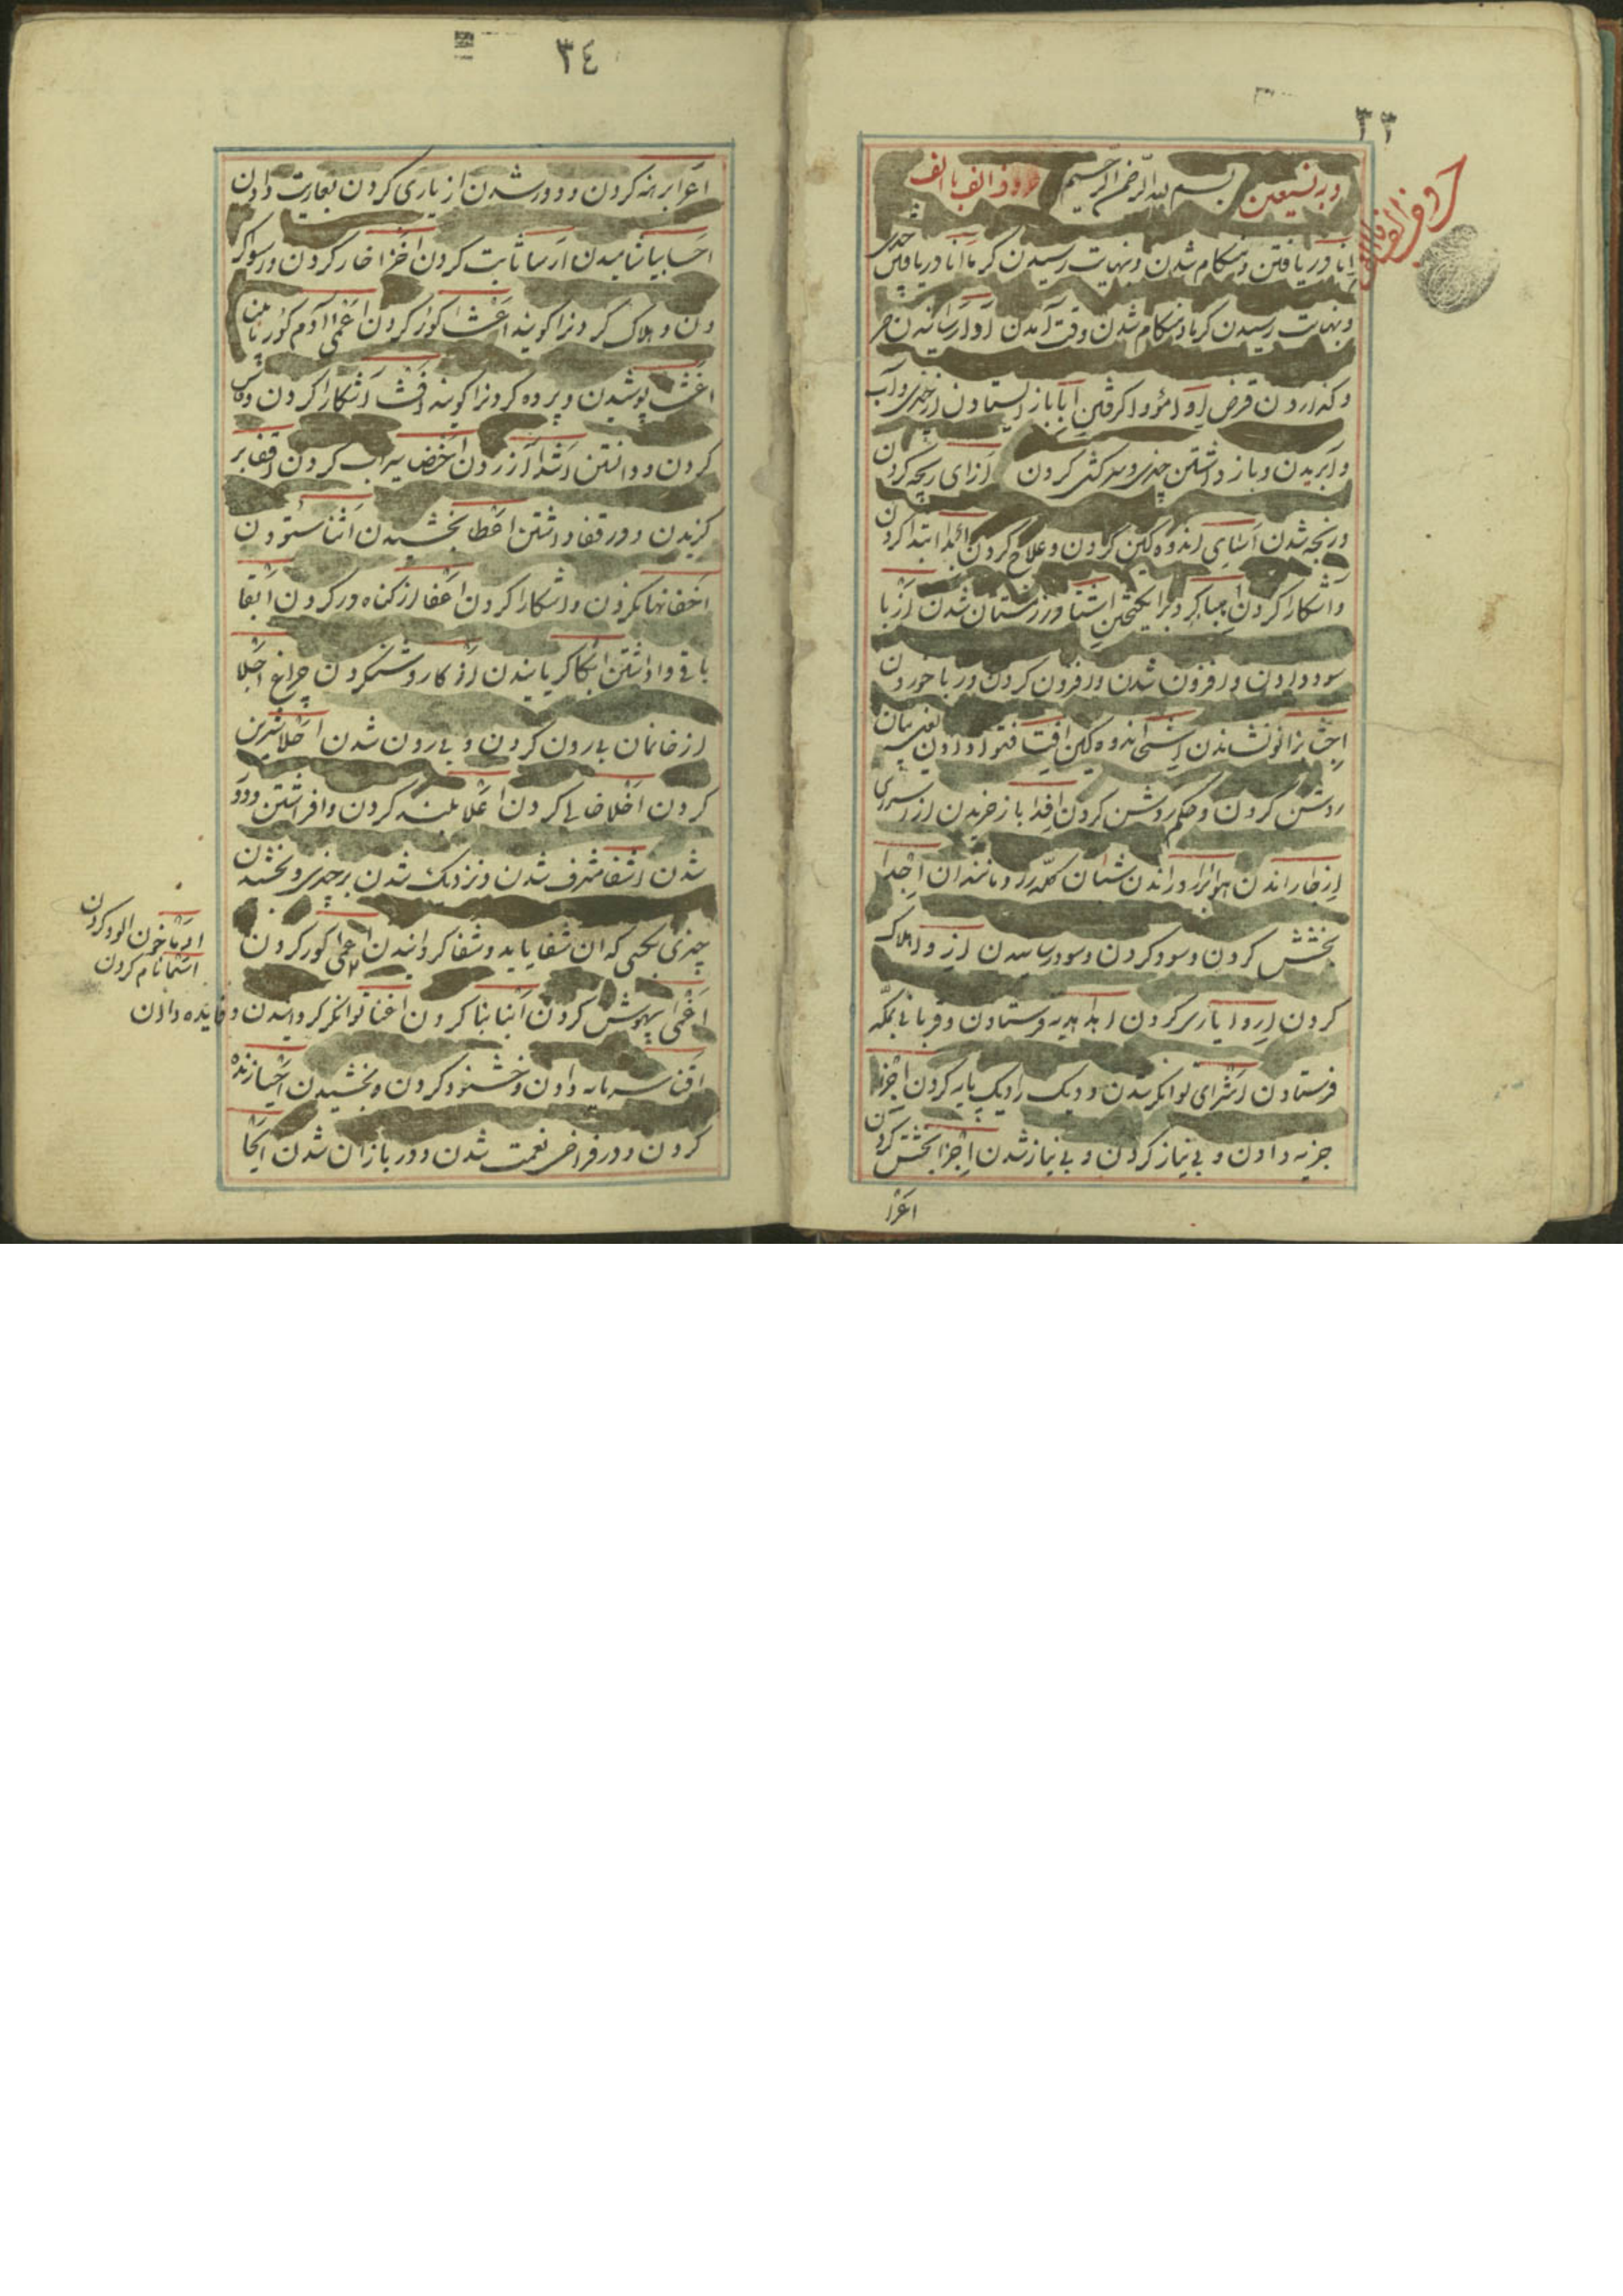 ٣٣
وبه نستعين بسم الله الرحمن الرحيم حروف الف با الف
انا دريافتن و هنكام شدن و بنهايت رسيدن كرما انا دريافتن چيزى
و بنهايت رسيدن كرما و هنكام شدن وقت آمدن
و كذاردن قرض ايوا مؤوا كرفتن ابا باز ايستادن از چيزى و آب
وا بريدن و باز داشتن چيزى و سركشى كردن ازاى رنجه كردن
و رنجه شدن اساى اندوه كين كردن و علاج كردن ابدا ابتدا كردن
و اشكارا كردن اجبا كرد برانكيختن اشتا در زمستان شدن اربا
سود دادن و افزون شدن و افزون كردن و ربا خوردن
اجثا بزانو نشاندن اشجا اندوه كين افتا فتوا دادن يعنى بيان
روشن كردن و حكم روشن كردن افدا باز خريدن از اسيرى
ازجا راندن هوا ابرا و راندن شبان كله را و مانند ان اجدا
بخشش كردن و سود كردن و سود رسانيدن ارز و اهلاك
كردن اروا يارى كردن اهدا هديه فرستادن و قربانى بمكه
فرستادن اثراى توانكر شدن و ديك را ديك پايه كردن اجزا
جزيه دادن و بى نياز كردن و بى نياز شدن اجزا بخشش كردن
اعرا
٣٤
اعرا برهنه كردن و دور شدن از يارى كردن بعاريت دادن
احسا بياشاميدن ارسا ثابت كردن اخزا خار كردن و رسوا كر
دن و هلاك كردنرا كويند اعشا كور كردن اعمى آدم كور نابينا
اغشا پوشيدن و پرده كردنرا كويند افشا اشكارا كردن و فاش
كردن و دانستن اشدا ازردن اخضا سيراب كردن اقفا بر
كزيدن و در قفا داشتن اعطا بخشيدن اثنا ستودن
اخفا نهان كردن و اشكارا كردن اعفا از كناه در كردن ابقا
باقى وا داشتن ابكا كريانيدن اذكا روشن كردن چراغ اجلا
از خانمان بيرون كردن و بيرون شدن احلا شيرين
كردن اخلا خالى كردن اعلا بلند كردن و افراشتن و دور
شدن اشفا مشرف شدن و نزديك شدن بر چيزى و بخشيدن
چيزى بكسى كه ان شفا يابد و شفا كردانيدن اعمى كور كردن
اغمى بيهوش كردن ابنا بنا كردن اغنا توانكر كردانيدن و فايده دادن
اقنا سرمايه دادن و خشنود كردن و بخشيدن احيا زنده
كردن و در فراخى نعمت شدن و در بازان شدن ايحا
ادما خون الود كردن
اسما نام كردن